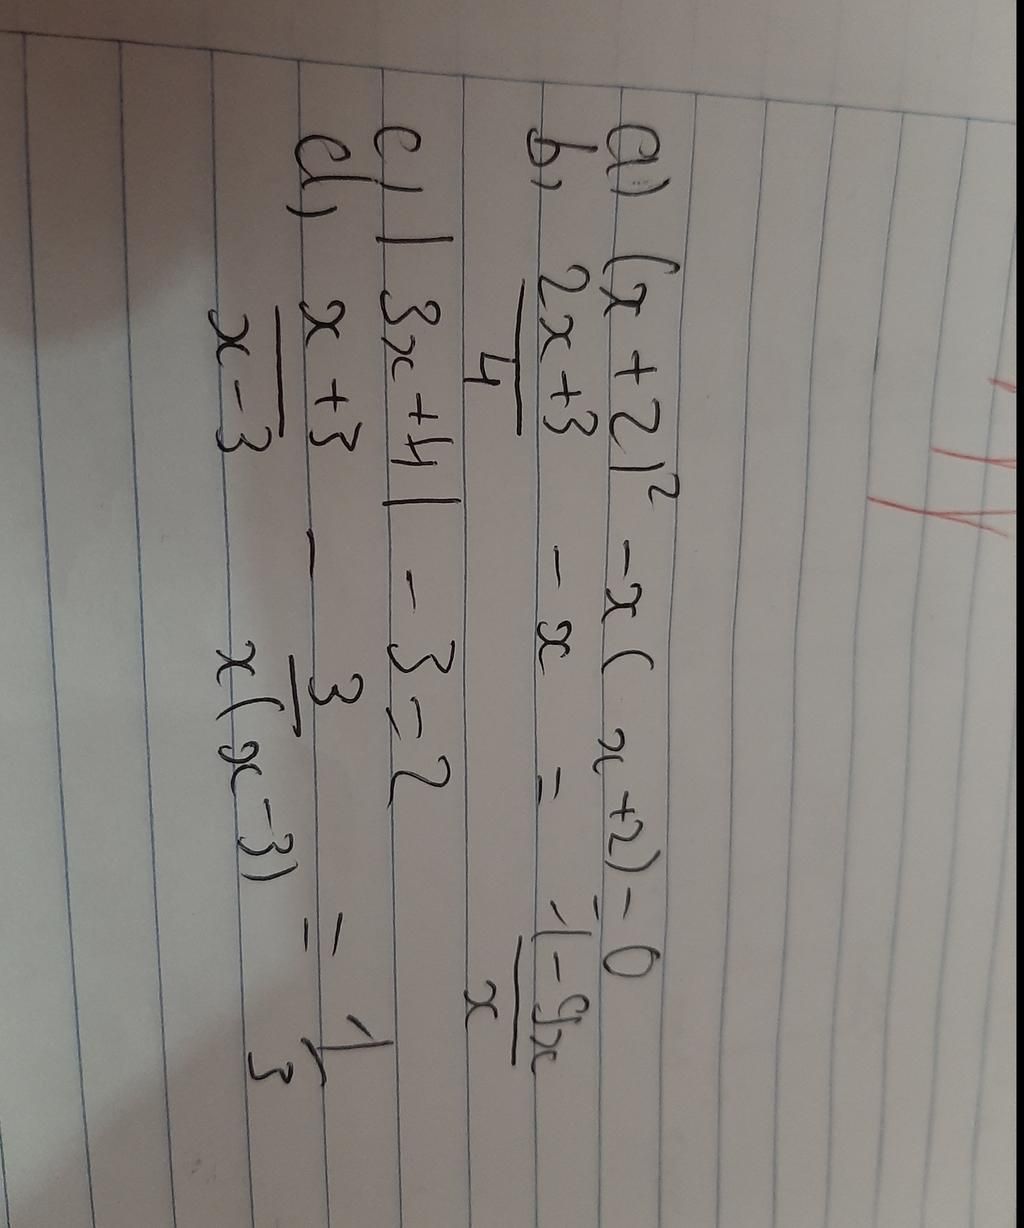 a) (x + 2)² - x(x + 2) = 0
b, (2x + 3)/4 - x = (1 - 9x)/x
c, |3x + 4| - 3 = 2
d, (x + 3)/(x - 3) - 3/(x(x - 3)) = 1/3